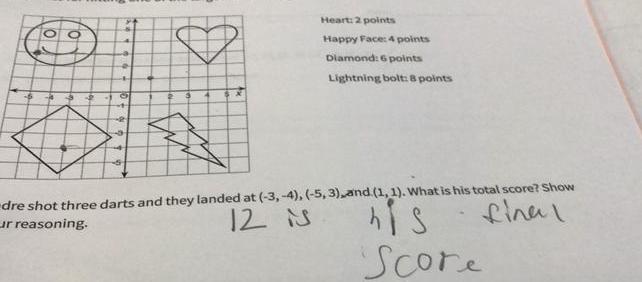 Heart: 2 points
Happy Face: 4 points
Diamond: 6 points
Lightning bolt: 8 points
y
x
dre shot three darts and they landed at (-3, -4), (-5, 3), and (1, 1). What is his total score? Show
ur reasoning.
12 is his final
score